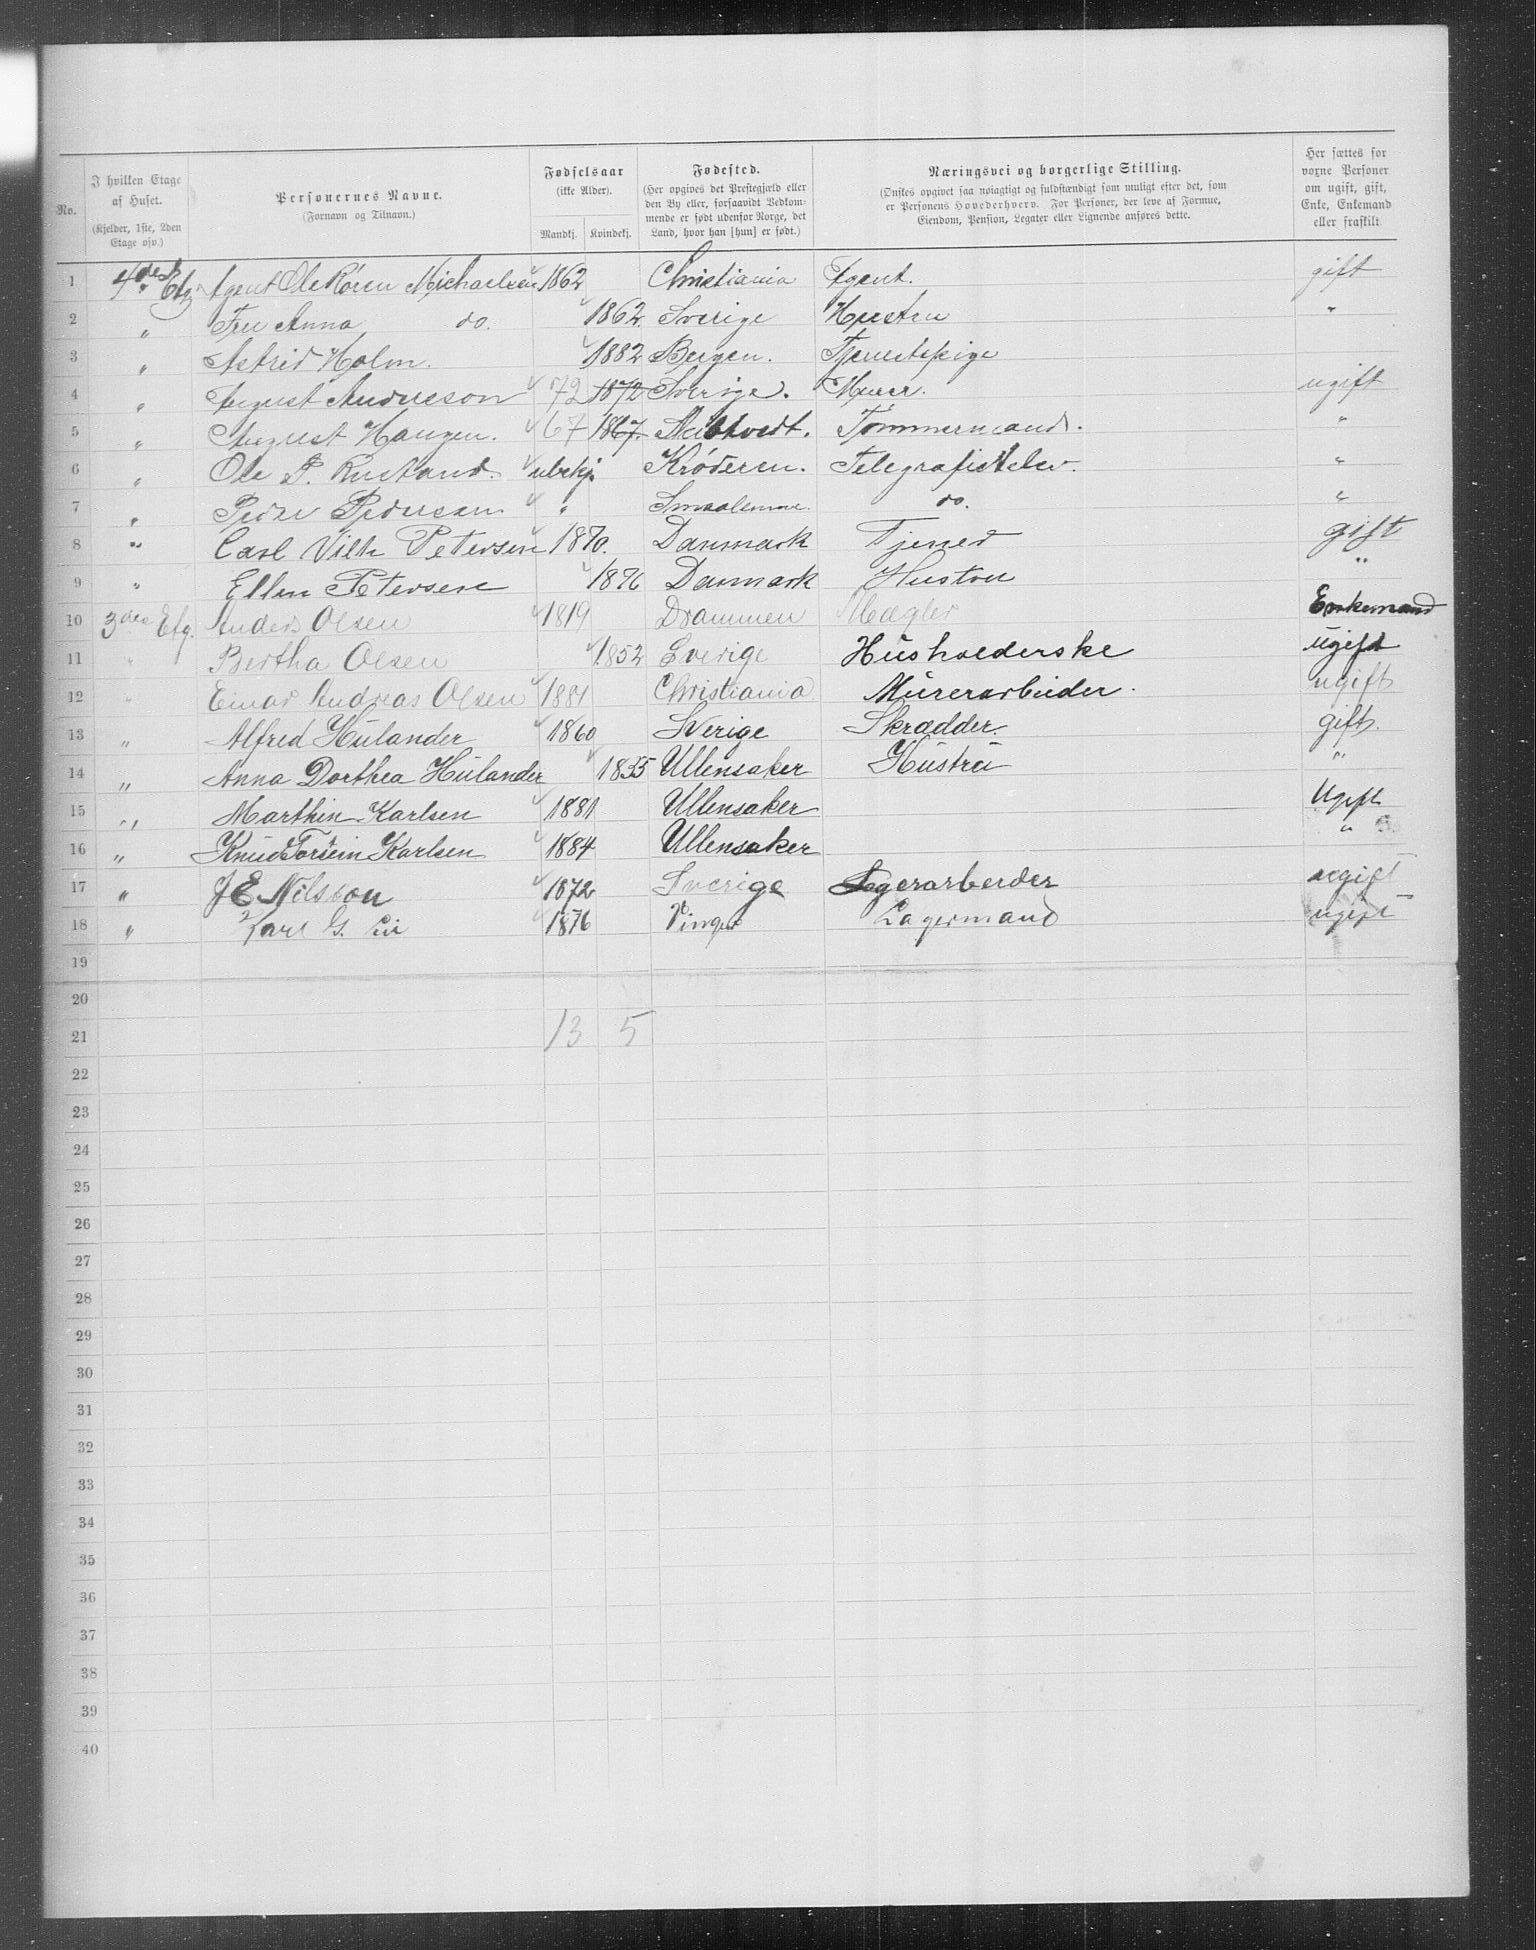 No. | I hvilken Etage af Huset. (Kjelder, 1ste, 2den Etage osv.) | Personernes Navne. (Fornavn og Tilnavn.) | Fødselsaar (ikke Alder). Mandkj. Kvindekj. | Fødested. (Her opgives det Prestegjæld eller den By eller, forsaavidt Vedkommende er født udenfor Norge, det Land, hvor han [hun] er født.) | Næringsvei og borgerlige Stilling. (Ønskes opgivet saa nøiagtigt og fuldstændigt som muligt efter det, som er Personens Hovederhverv. For Personer, der leve af Formue, Eiendom, Pension, Legater eller Lignende anføres dette. | Her sættes for voxne Personer om ugift, gift, Enke, Enkemand eller fraskilt
1 4de Etg Agent Ole Røren Michaelsen 1862 Christiania Agent. gift
2 " Fru Anna do. 1862. Sverige Hustru "
3 " Astrid Holm. 1882 Bergen. Tjenestepige
4 " August Andresson 72 1872 Sverige. Murer. ugift
5 " August Haugen. 67 1867. Skibtvedt. Tømmermand. "
6 " Ole P. Rustand. ubekj. Krøderen. Telegrafistelev. "
7 " Peder Pedersen " Smaalenene. do. "
8 " Carl Vilh Petersen 1870. Danmark Tjener gift
9 " Ellen Petersen 1876 Danmark Hustru "
10 3die Etg. Anders Olsen 1819 Drammen Mægler Enkemand
11 " Bertha Olsen 1852 Sverige Husholderske ugift
12 " Einar Andreas Olsen 1881 Christiania Murerarbeider. ugift
13 " Alfred Hulander 1860 Sverige Skrædder. gift.
14 " Anna Dorthea Hulander 1835 Ullensaker Hustru "
15 " Marthin Karlsen 1881 Ullensaker Ugift
16 " Knud Karlsen 1884 Ullensaker "
17 " J E Nilsson 1872 Sverige Lagerarbeider ugift
18 " Karl G. Lii 1876 Vinger Lagermand ugift
19
20
21 13 5
22
23
24
25
26
27
28
29
30
31
32
33
34
35
36
37
38
39
40